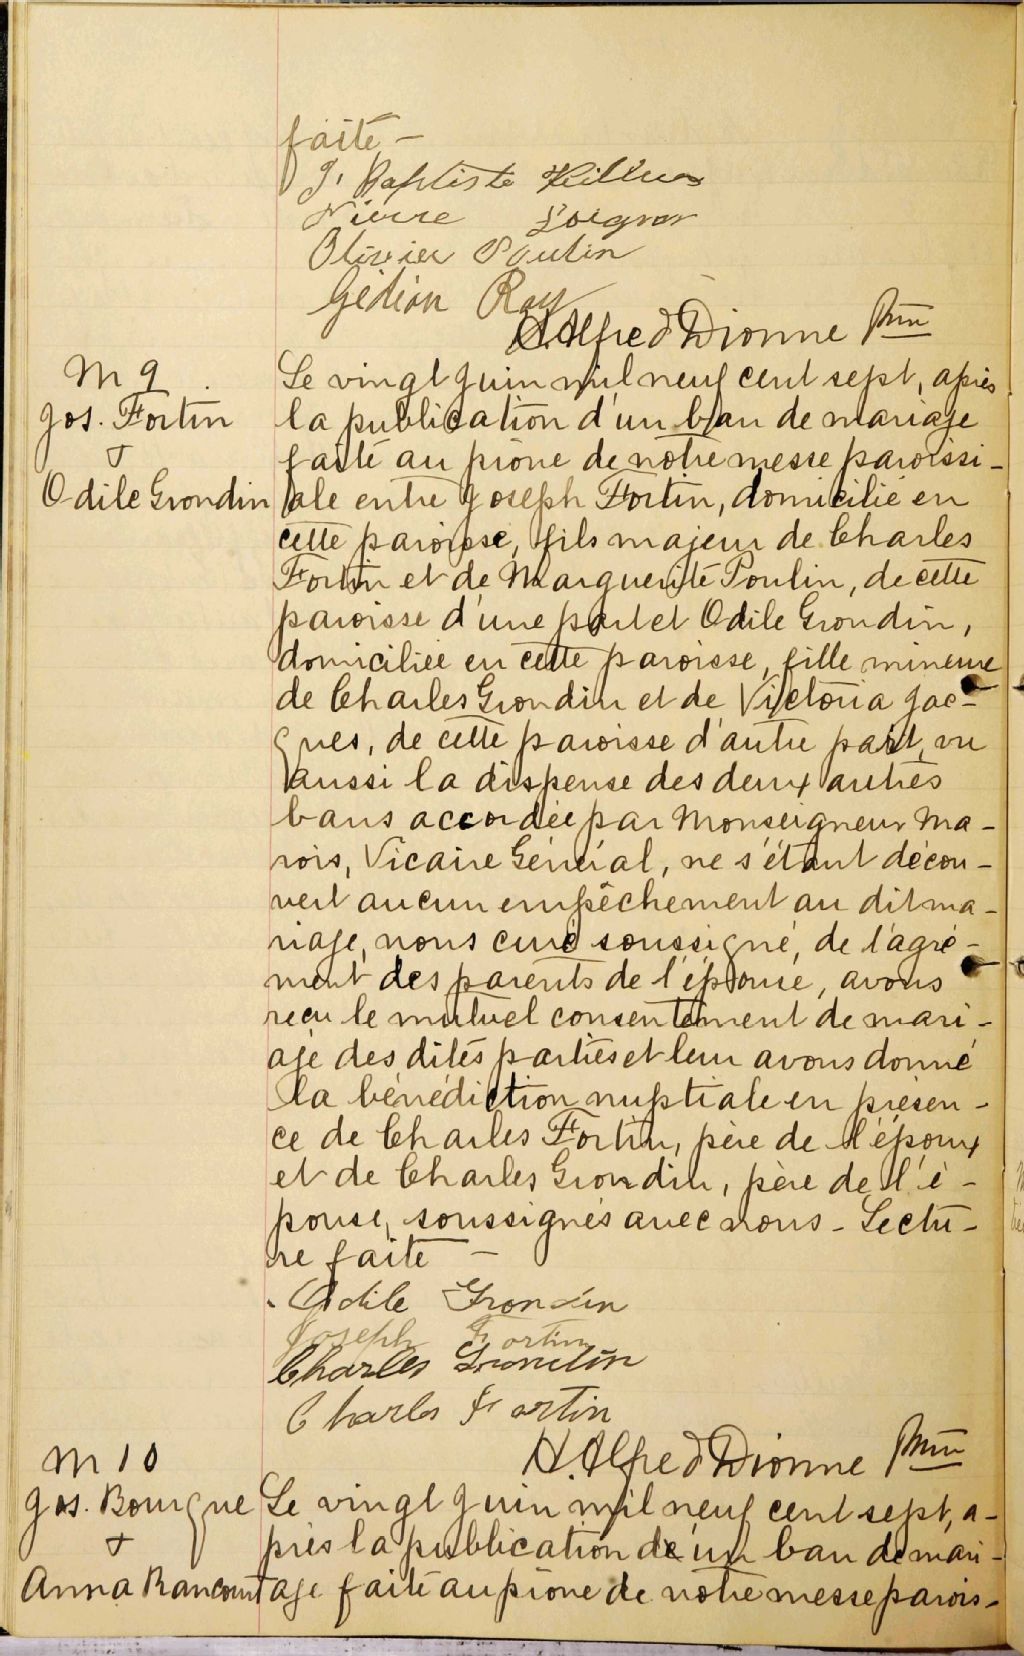 faite -
J. Baptiste
Pierre
Olivier Poulin
Gédéon Roy
H. Alfred Dionne Ptre
M 9
Jos. Fortin
+
Odile Grondin
Le vingt Juin mil neuf cent sept, après
la publication d'un ban de mariage
faite au prône de notre messe paroissi-
ale entre Joseph Fortin, domicilié en
cette paroisse, fils majeur de Charles
Fortin et de Marguerite Poulin, de cette
paroisse d'une part et Odile Grondin,
domiciliée en cette paroisse, fille mineure
de Charles Grondin et de Victoria Jac-
ques, de cette paroisse d'autre part, vu
aussi la dispense des deux autres
bans accordée par Monseigneur Ma-
rois, Vicaire Général, ne s'étant décou-
vert aucun empêchement au dit ma-
riage, nous curé soussigné, de l'agré-
ment des parents de l'épouse, avons
reçu le mutuel consentement de mari-
age des dites parties et leur avons donné
la bénédiction nuptiale en présen-
ce de Charles Fortin, père de l'époux
et de Charles Grondin, père de l'é-
pouse, soussignés avec nous - Lectu-
re faite -
Odile Grondin
Joseph Fortin
Charles Grondin
Charles Fortin
H. Alfred Dionne Ptre
M 10
Jos. Bourque
+
Anna Rancourt
Le vingt Juin mil neuf cent sept, a-
près la publication d'un ban de mari-
age faite au prône de notre messe parois-